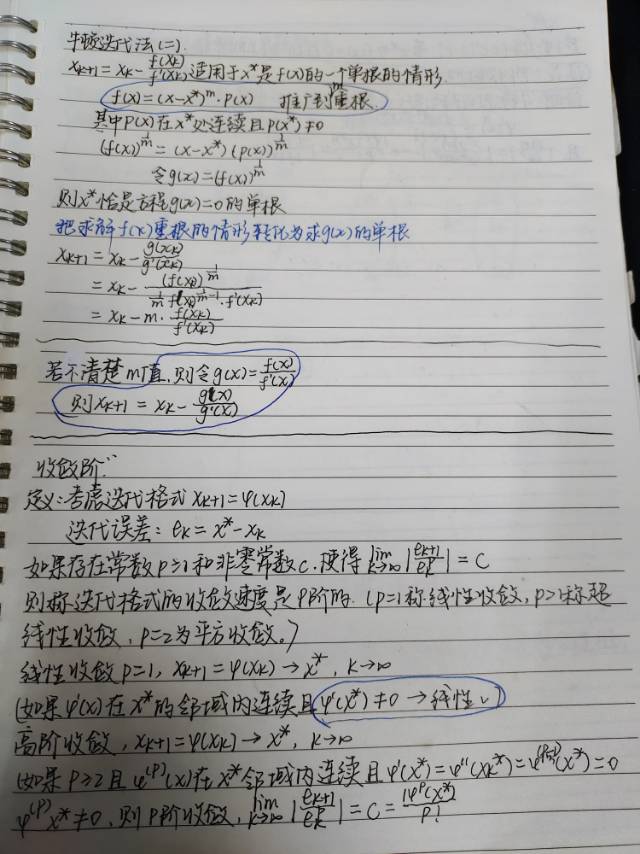 牛顿迭代法(二).
x_{k+1} = x_k - f(x_k)/f'(x_k) 适用于x*是f(x)的一个单根的情形
f(x) = (x-x*)^m · p(x) 推广到m重根.
其中p(x)在x*处连续且p(x*)≠0
(f(x))^{1/m} = (x-x*)(p(x))^{1/m}
令g(x) = (f(x))^{1/m}
则x*恰是方程g(x)=0的单根
把求解f(x)重根的情形转化为求g(x)的单根
x_{k+1} = x_k - g(x_k)/g'(x_k)
= x_k - (f(x_k))^{1/m} / (1/m f(x_k)^{1/m-1} · f'(x_k))
= x_k - m · f(x_k)/f'(x_k)
若不清楚m值, 则令g(x) = f(x)/f'(x)
则x_{k+1} = x_k - g(x)/g'(x)
收敛阶:
定义: 考虑迭代格式 x_{k+1} = φ(x_k)
迭代误差: e_k = x* - x_k
如果存在常数p≥1和非零常数c, 使得 lim_{k→∞} |e_{k+1}/e_k^p| = C
则称迭代格式的收敛速度是p阶的. (p=1称线性收敛, p>1称超
线性收敛, p=2为平方收敛。)
线性收敛p=1, x_{k+1} = φ(x_k) → x*, k→∞
(如果φ'(x)在x*的邻域内连续且φ'(x*)≠0 → 线性√)
高阶收敛, x_{k+1} = φ(x_k) → x*, k→∞
(如果p≥2且φ^{(p)}(x)在x*邻域内连续且φ'(x*) = φ''(x_k*) = φ^{(p-1)}(x*) = 0
φ^{(p)}x*≠0, 则p阶收敛, lim_{k→∞} |e_{k+1}/e_k^p| = C = |φ^p(x*)|/p!